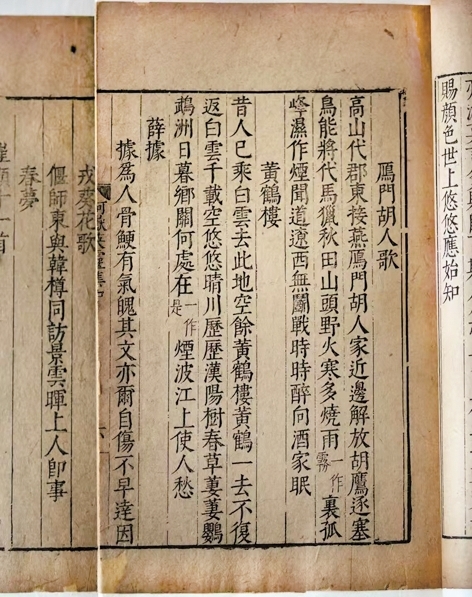 賜顏色世上悠悠應始知
鴈門胡人歌
高山代郡東接燕鴈門胡人家近邊解放胡鷹逐塞
鳥能將代馬獵秋田山頭野火寒多燒雨一作霧裏孤
峰濕作煙聞道遼西無鬭戰時時醉向酒家眠
黃鶴樓
昔人已乘白雲去此地空餘黃鶴樓黃鶴一去不復
返白雲千載空悠悠晴川歷歷漢陽樹春草萋萋鸚
鵡洲日暮鄉關何處在一作是煙波江上使人愁
薛據
據爲人骨鯁有氣魄其文亦爾自傷不早達因
戎葵花歌
偃師東與韓樽同訪景雲暉上人即事
春夢
十一首